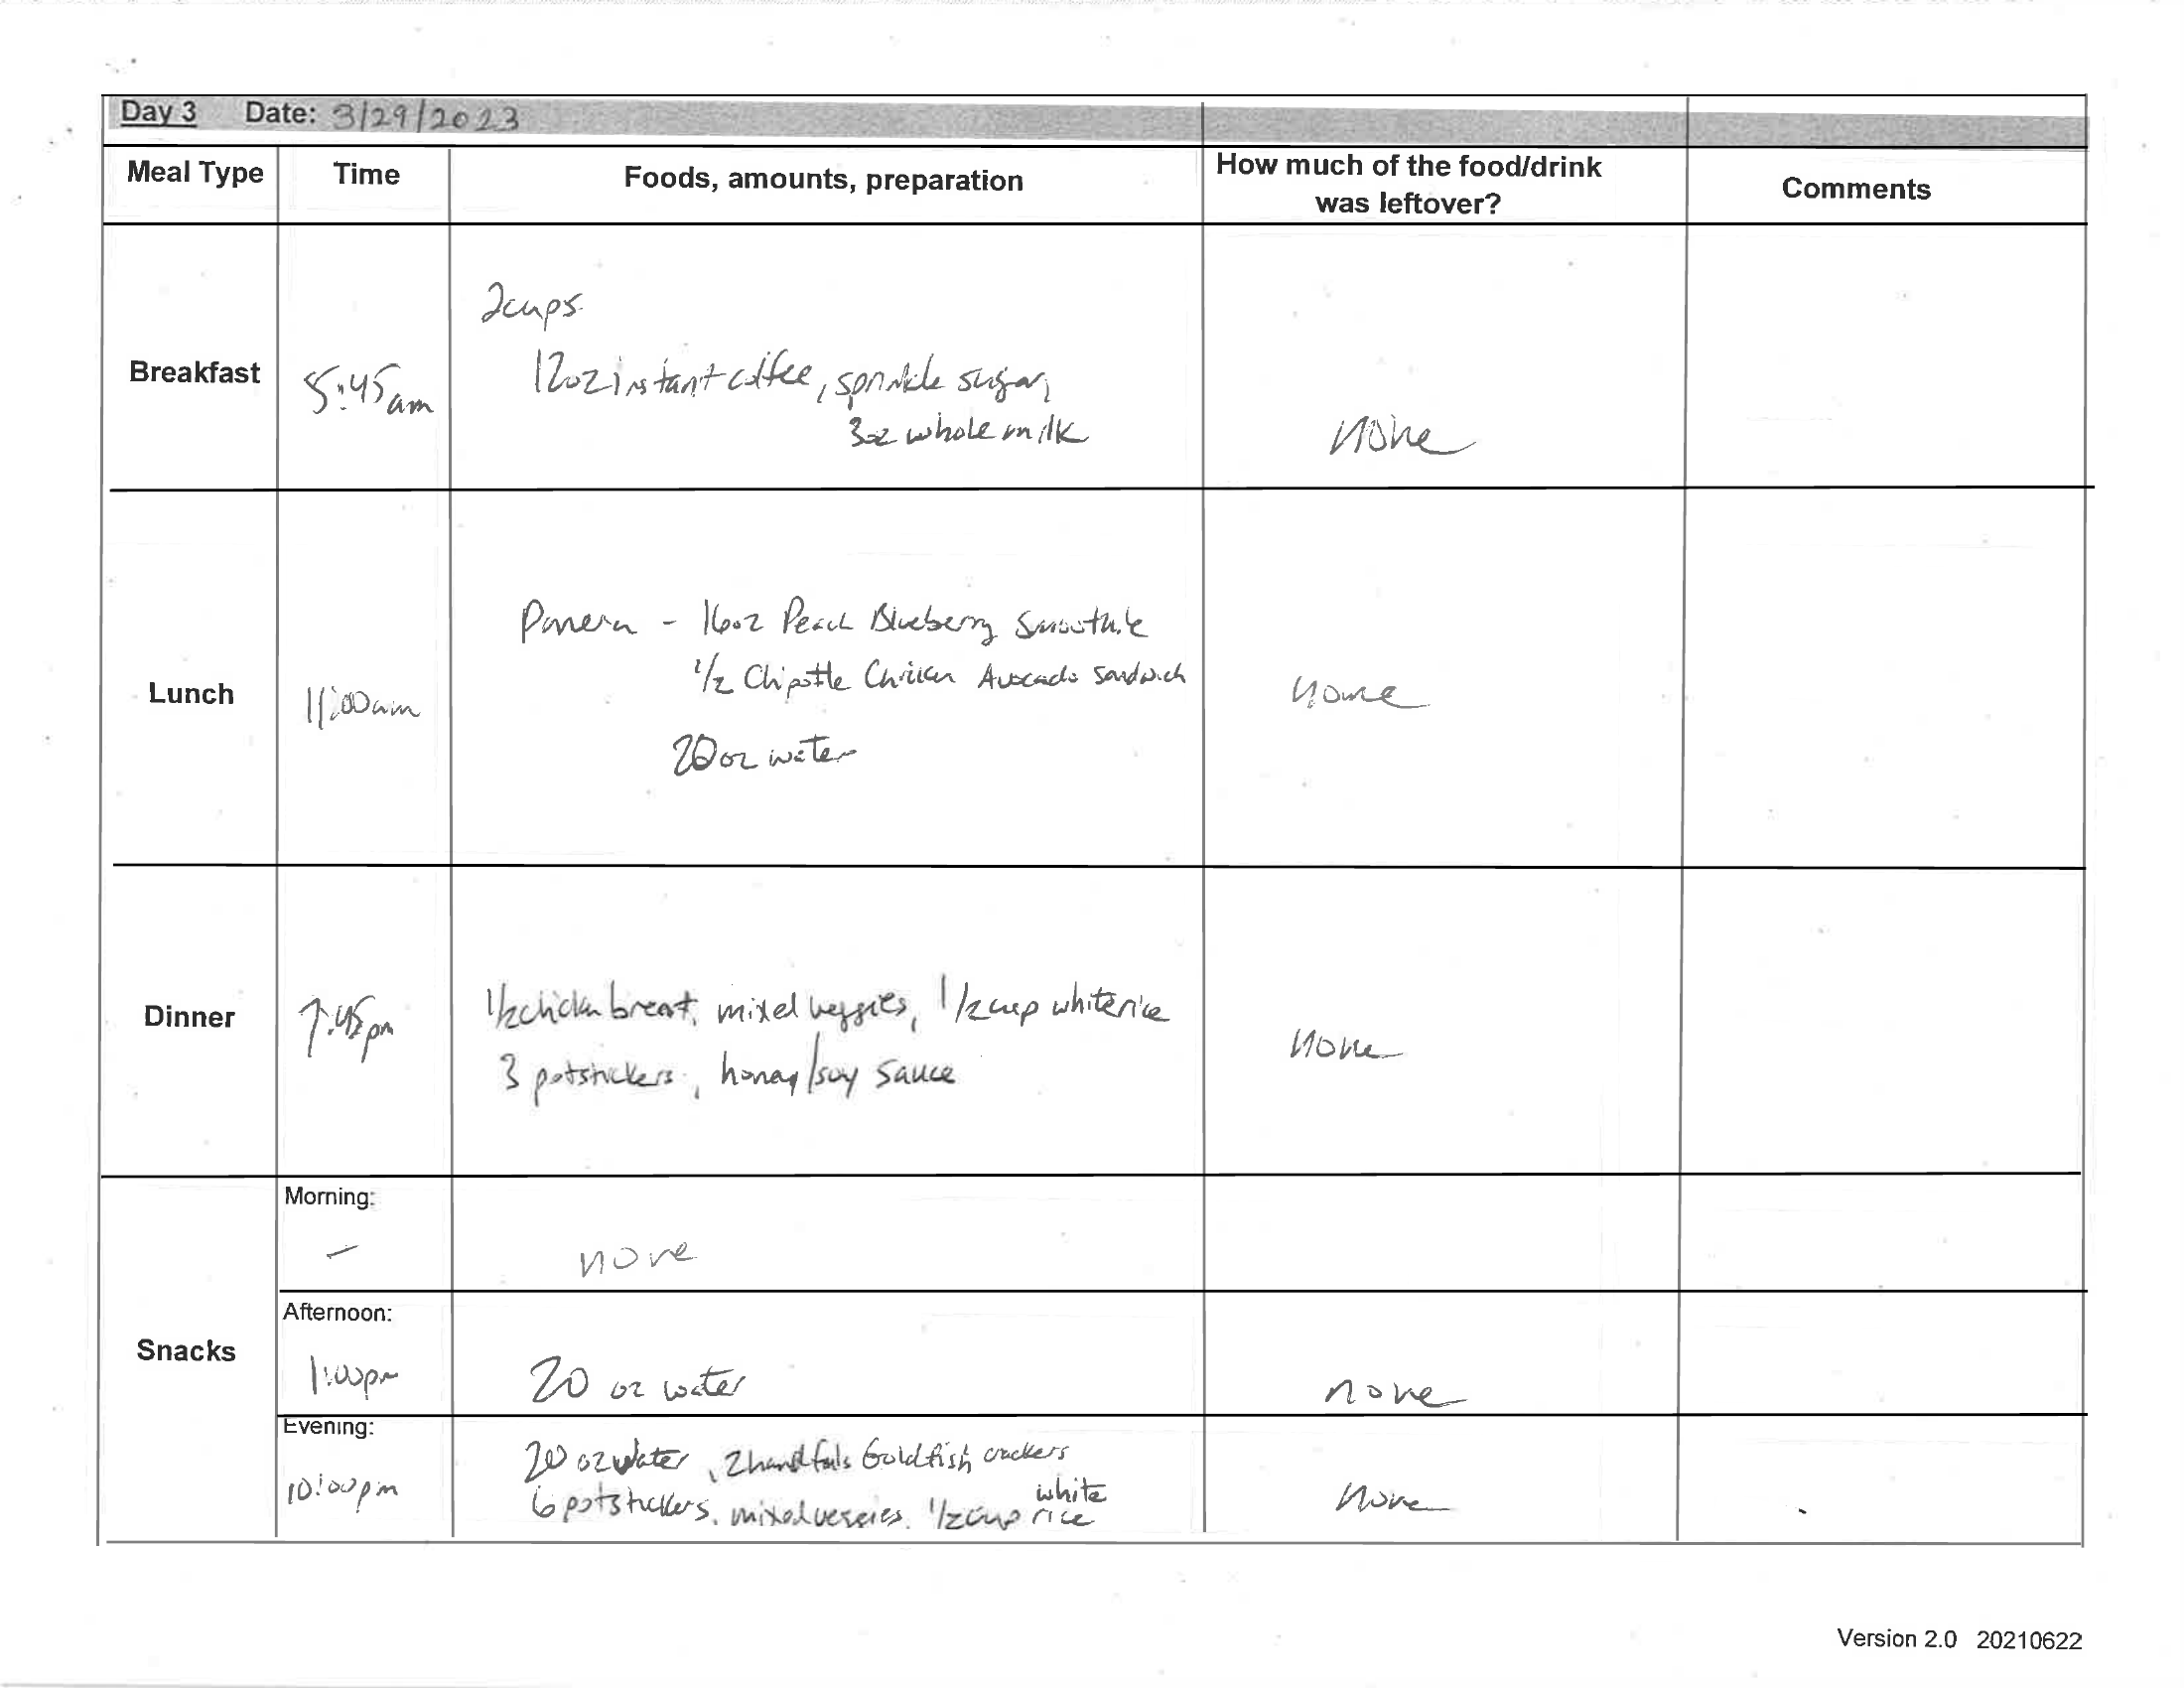 Day 3 Date: 3/29/2023
Meal Type Time Foods, amounts, preparation How much of the food/drink was leftover? Comments
Breakfast 5:45am
2cups
12oz instant coffee, sprinkle sugar,
3oz whole milk
none
Lunch 11:00am
Panera - 16oz Peach Blueberry Smoothie
1/2 Chipotle Chicken Avocado sandwich
20 oz water
none
Dinner 7:45pm
1/2 chicken breast, mixed veggies, 1 1/2 cup white rice
3 potstickers, honey/soy sauce
none
Snacks
Morning:
— none
Afternoon:
1:00pm 20 oz water none
Evening:
10:00pm
20 oz water, 2 handfuls Goldfish crackers
6 potstickers, mixed veggies, 1/2 cup white rice
none
Version 2.0 20210622